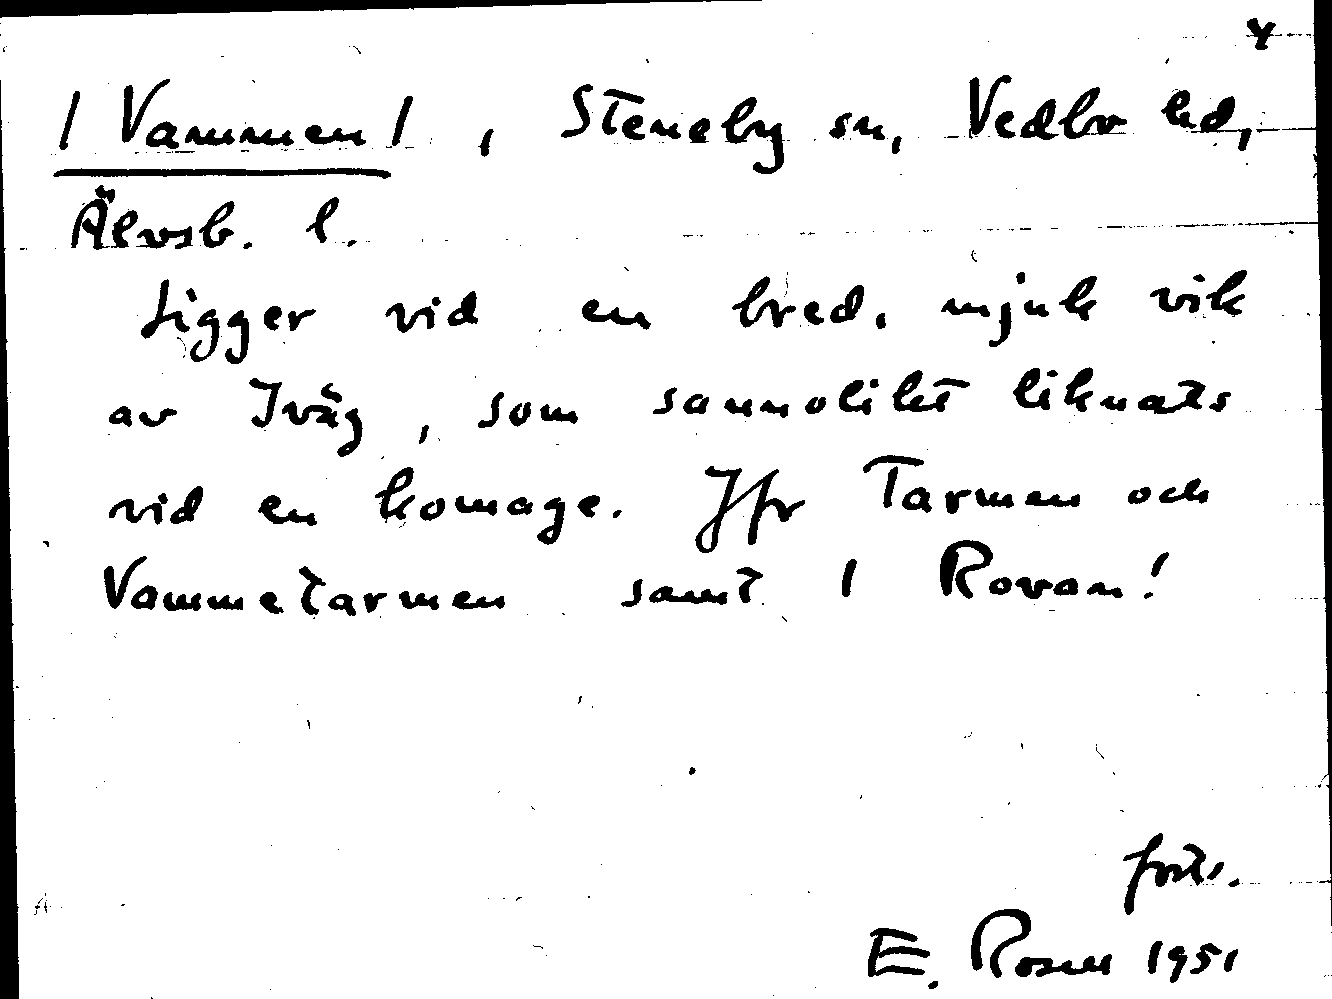 4
/ Vammen / , Steneby sn, Vedbo hd,
Älvsb. l.
Ligger vid en bred, mjuk vik
av Iväg, som sannolikt liknats
vid en komage. Jfr Tarmen och
Vammetarmen samt I Rovan!
forts.
E. Rosell 1951